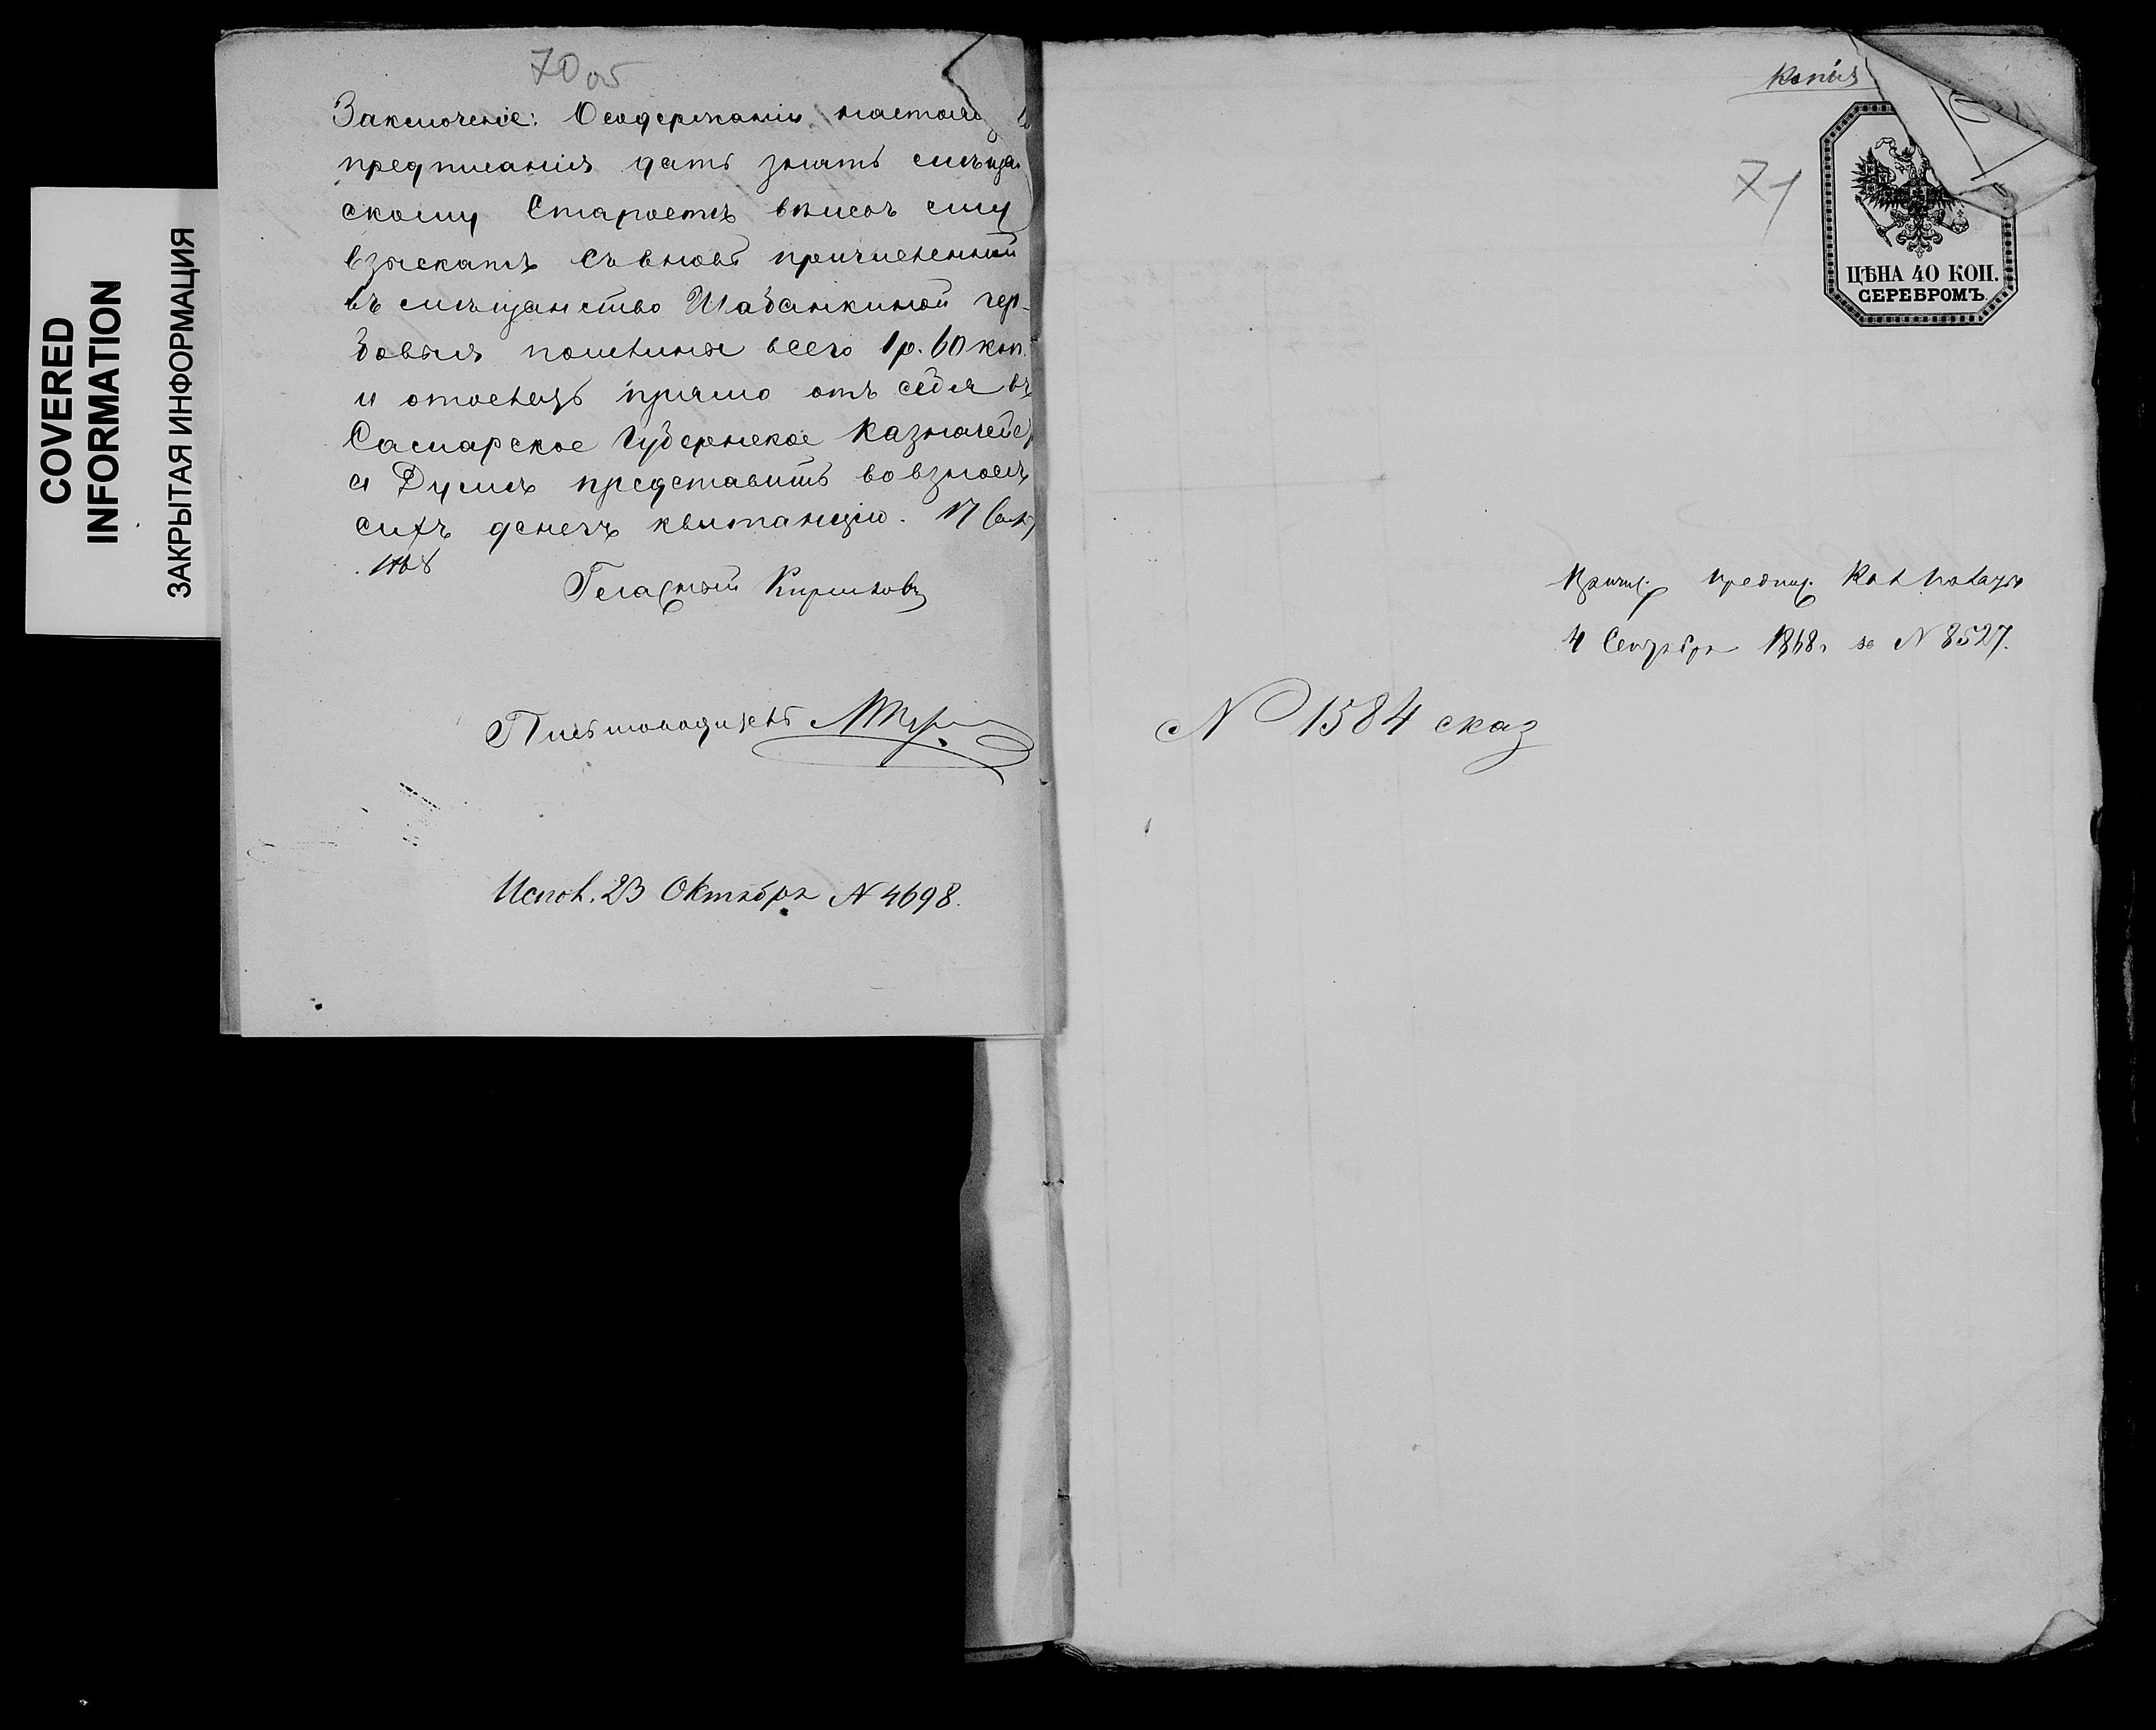 COVERED
INFORMATION
ЗАКРЫТАЯ ИНФОРМАЦИЯ
70 об
Заключеніе: О содержаніи настоящ
предписанія дать знать мѣщан
скому Старостѣ внисавъ ему
взыскать съ вновь причисленной
въ мѣщанство Шабанкиной гер-
бовыя пошлины всего 1 р. 60 коп.
и отослать прямо отъ себя въ
Самарское Губернское Казначейс
а Думѣ представить во взносѣ
сихъ денегъ квитанцію. 17 Сент
1868
Гласный
Письмоводитель
Испол. 23 Октября № 4698.
Копія
71
ЦѢНА 40 КОП.
СЕРЕБРОМЪ.
Причис. предпис. Каз Палаты
4 Сентября 1868 г. за № 8527.
№ 1584 сказ